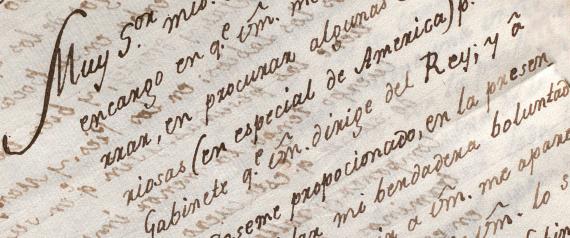 Muy S.or mio.
encargo en q.e vm̃. me
rrar, en procurar algunas
riosas (en especial de America) p.
Gabinete q.e vm̃. dirige del Rey; y a
seme propocionado, en la presen
mi berdadera boluntad
a vm̃. me apare
vm̃. lo s